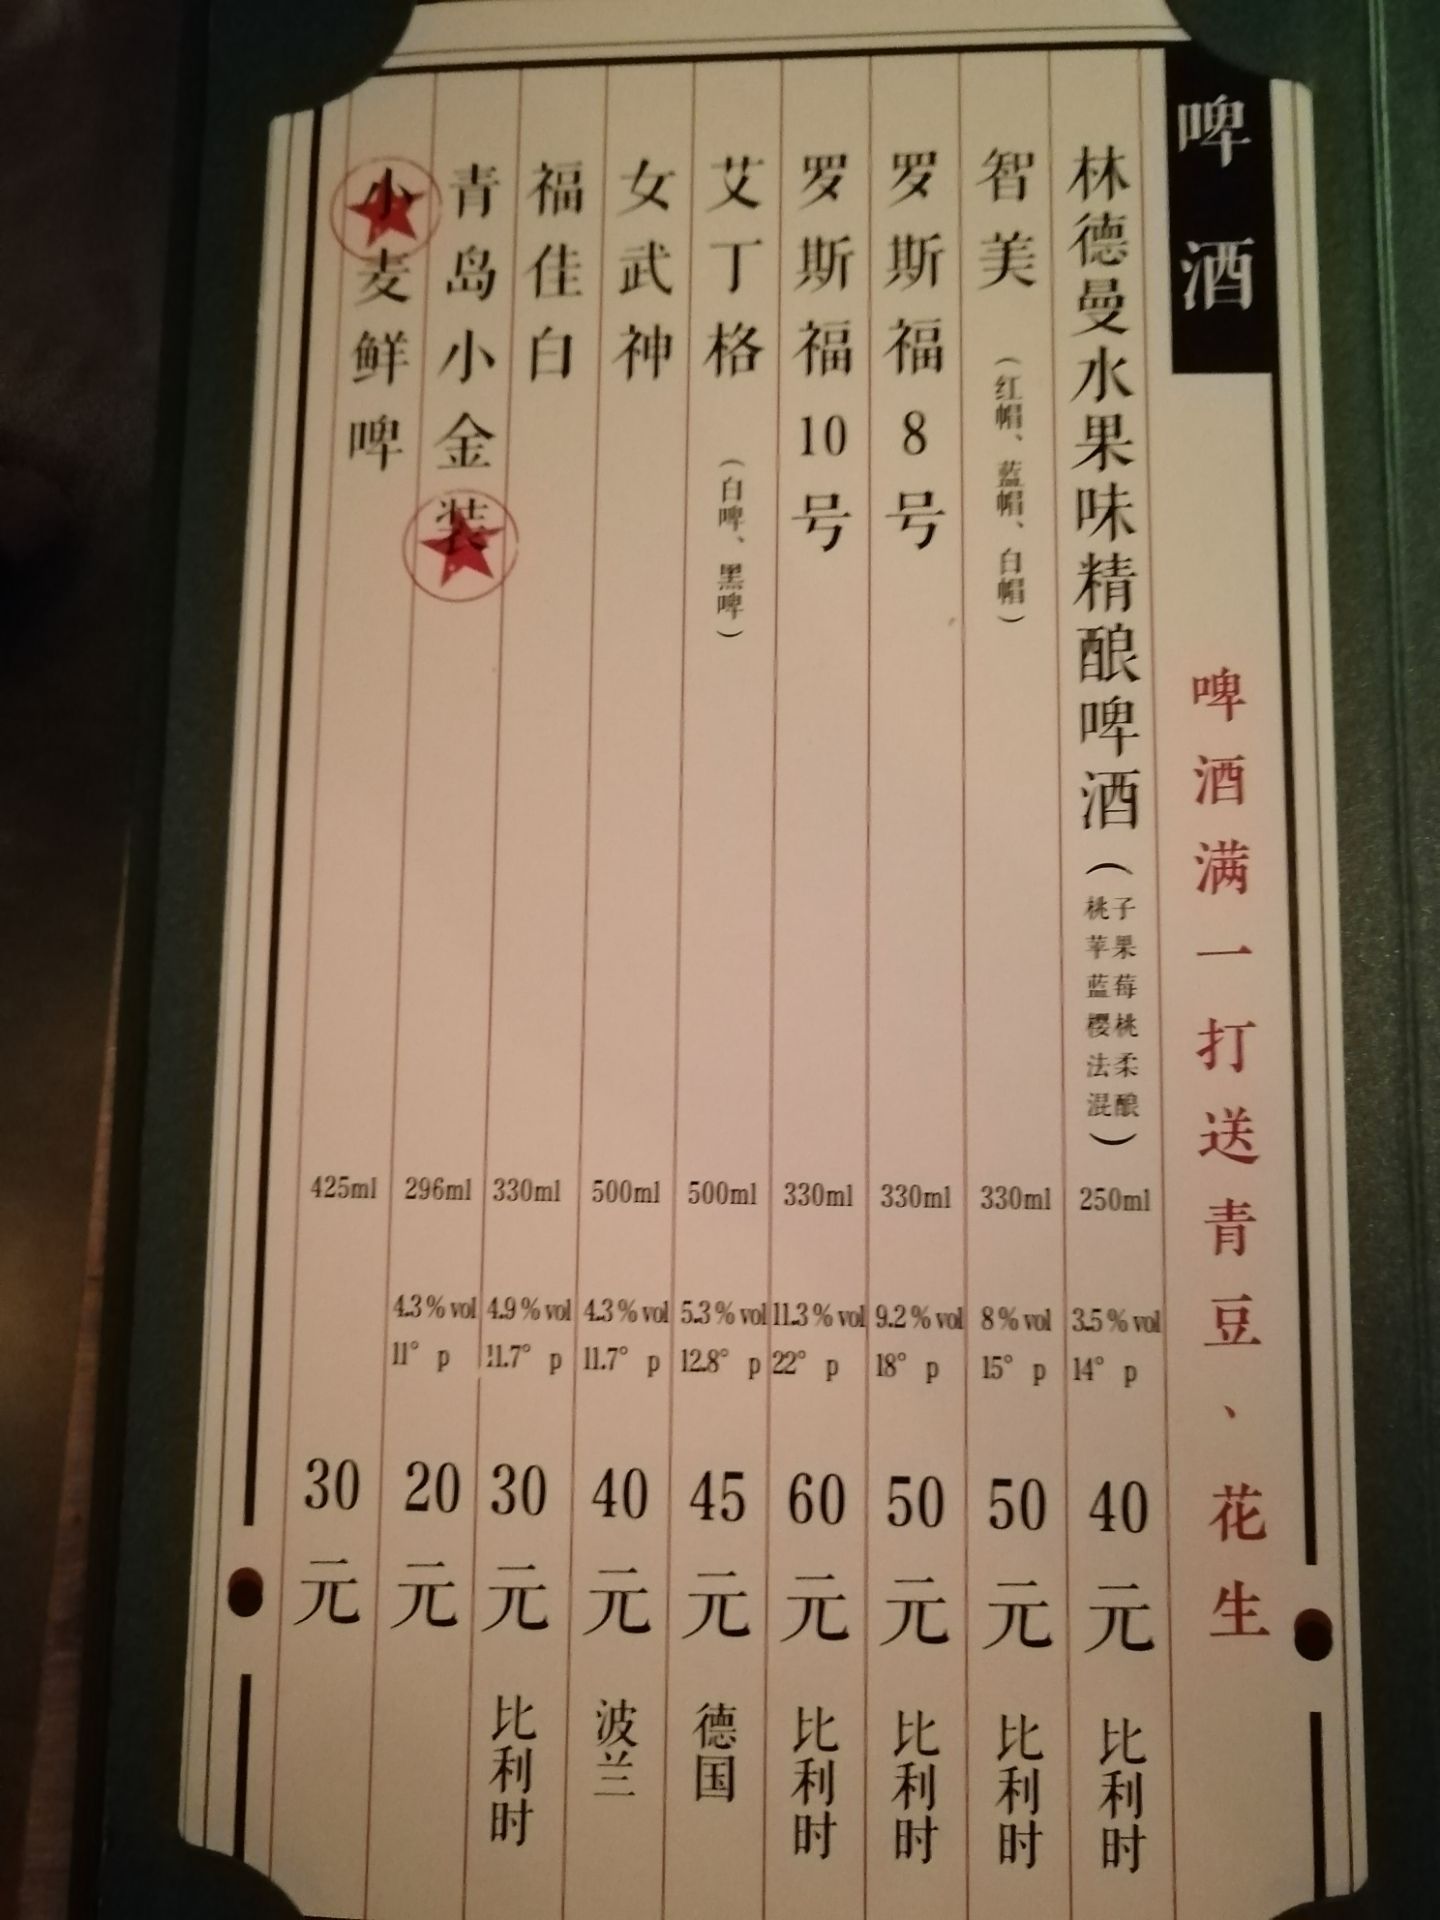 啤酒
啤酒满一打送青豆、花生
林德曼水果味精酿啤酒（桃子 苹果 蓝莓 樱桃 法柔 混酿） 250ml 3.5%vol 14°p 40元 比利时
智美（红帽、蓝帽、白帽） 330ml 8%vol 15°p 50元 比利时
罗斯福8号 330ml 9.2%vol 18°p 50元 比利时
罗斯福10号 330ml 11.3%vol 22°p 60元 比利时
艾丁格（白啤、黑啤） 500ml 5.3%vol 12.8°p 45元 德国
女武神 500ml 4.3%vol 11.7°p 40元 波兰
福佳白 330ml 4.9%vol 11.7°p 30元 比利时
青岛小金装 296ml 4.3%vol 11°p 20元
小麦鲜啤 425ml 30元